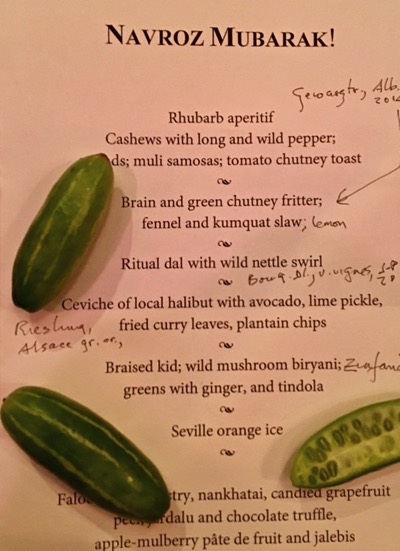 NAVROZ MUBARAK!
Alb.
Rhubarb aperitif
Cashews with long and wild pepper;
muli samosas; tomato chutney toast
Brain and green chutney fritter;
fennel and kumquat slaw; lemon
Ritual dal with wild nettle swirl
Ceviche of local halibut with avocado, lime pickle,
Riesling,
fried curry leaves, plantain chips
Alsace
Braised kid; wild mushroom biryani;
greens with ginger, and tindola
Seville orange ice
nankhatai, candied grapefruit
and chocolate truffle,
apple-mulberry pâte de fruit and jalebis